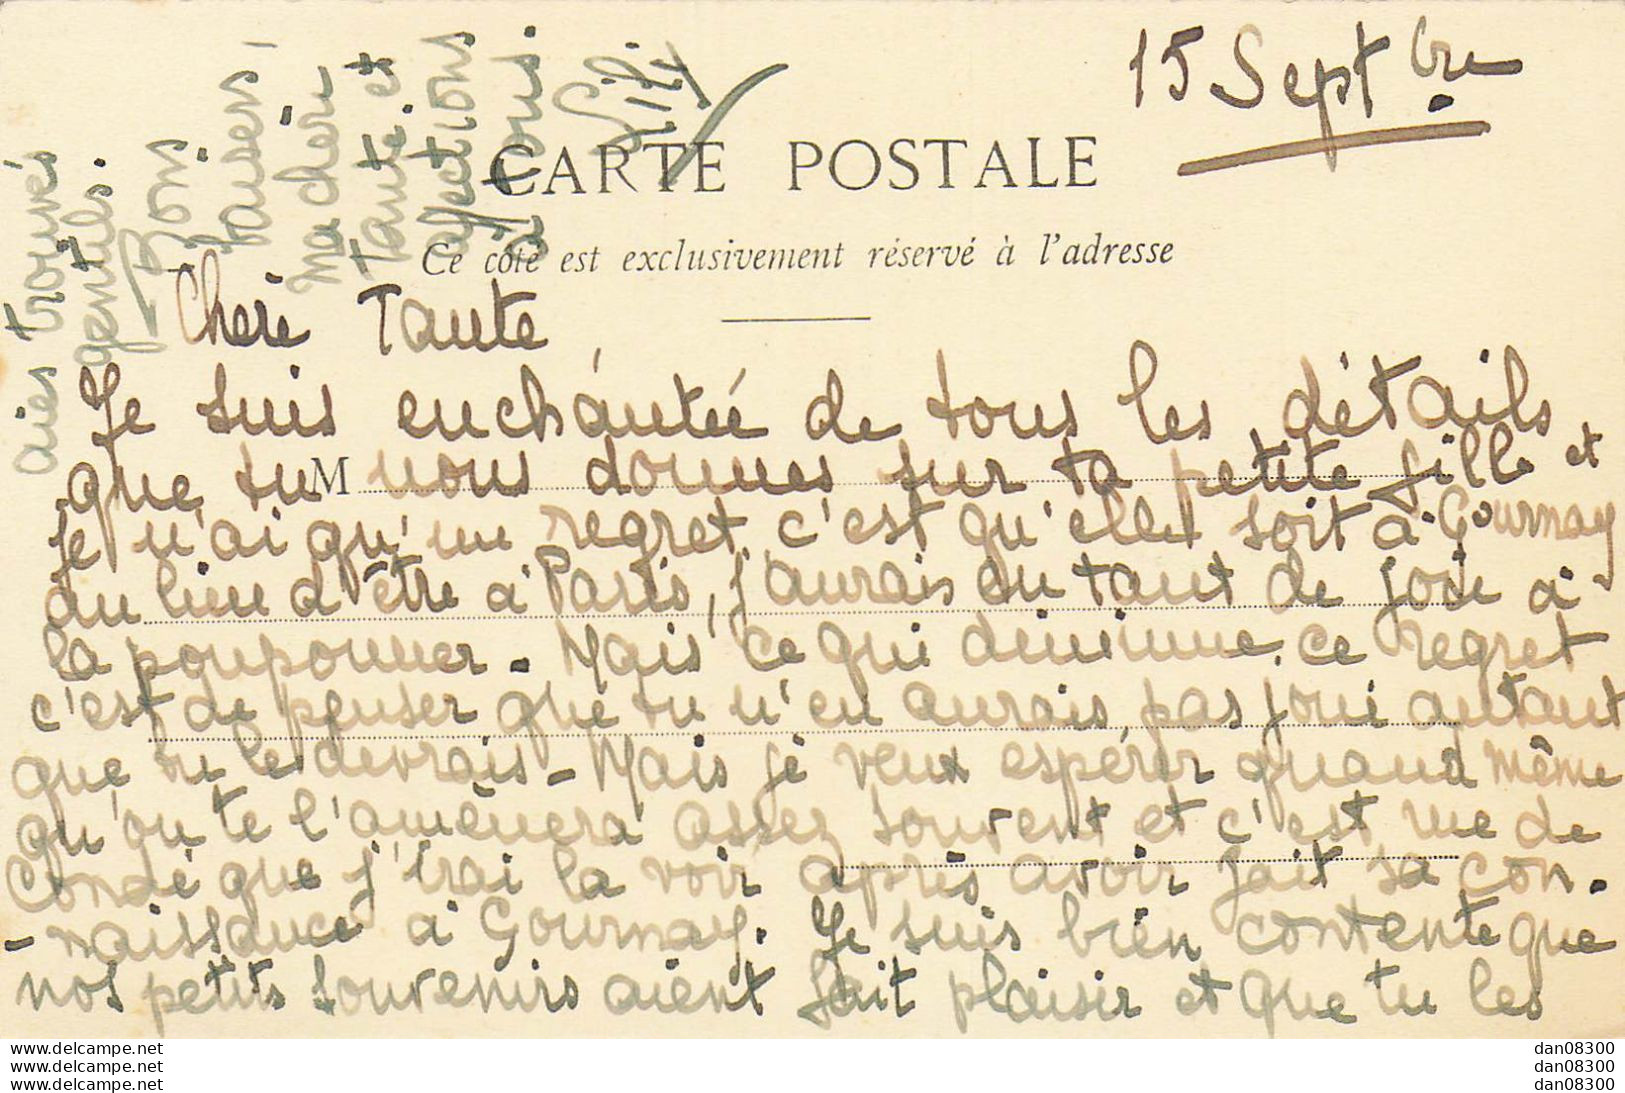 15 Septbre
CARTE POSTALE
Ce côté est exclusivement réservé à l'adresse
Chère Tante
Je suis enchantée de tous les détails
que tu nous donnes sur ta petite fille et
M
je n'ai qu'un regret c'est qu'elle soit à Gournay
au lieu d'être à Paris, j'aurais eu tant de joie à
la pouponner. Mais ce qui diminue ce regret
c'est de penser que tu n'en aurais pas joui autant
que tu le devrais - Mais je veux espérer quand même
qu'on te l'amènera assez souvent et c'est rue de
Condé que j'irai la voir après avoir fait sa con-
-naissance à Gournay. Je suis bien contente que
nos petits souvenirs aient fait plaisir et que tu les
aies trouvés
gentils.
Bons
baisers,
ma chère
Tante et
affections
à tous.
www.delcampe.net
www.delcampe.net
www.delcampe.net
dan08300
dan08300
dan08300